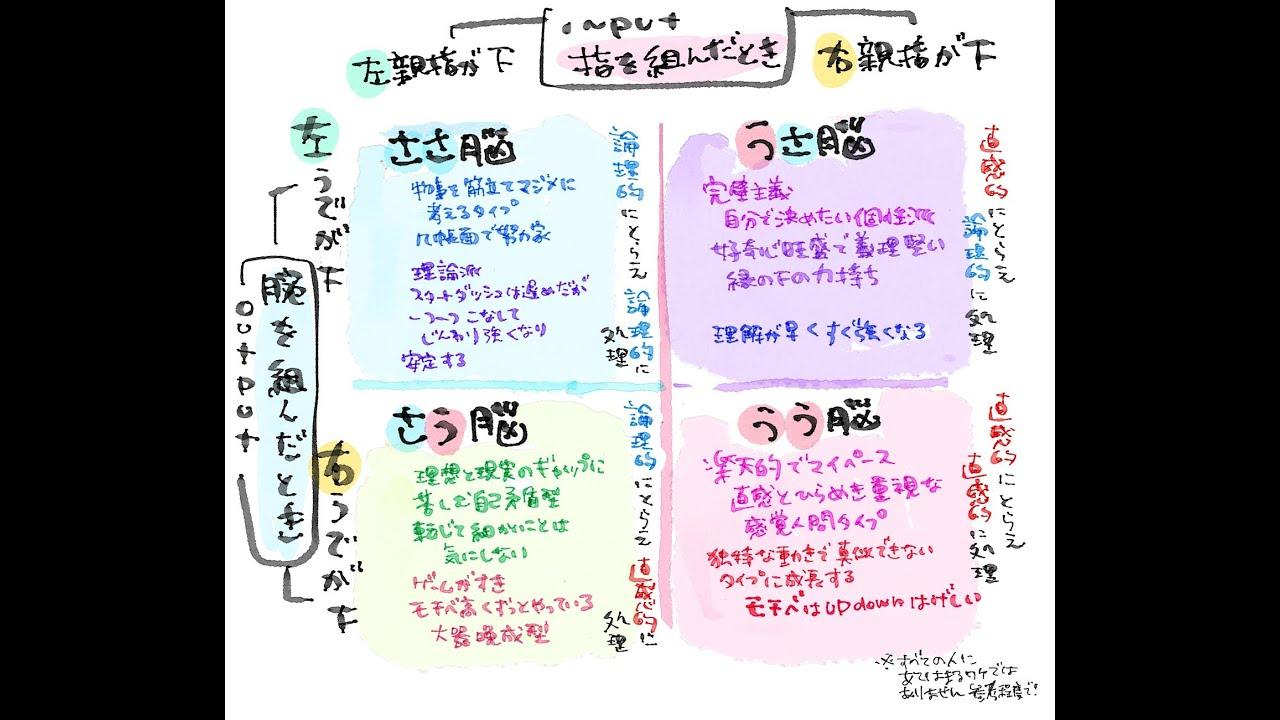 input
指を組んだとき
左親指が下
右親指が下
腕を組んだとき
output
左うでが下
右うでが下
ささ脳
物事を筋立てマジメに
考えるタイプ
几帳面で努力家
理論派
スタートダッシュは遅めだが
一つ一つこなして
じんわり強くなり
安定する
論理的にとらえ
論理的に
処理
うさ脳
完璧主義
自分で決めたい個性派
好奇心旺盛で義理堅い
縁の下の力持ち
理解が早くすぐ強くなる
直感的にとらえ
論理的に処理
さう脳
理想と現実のギャップに
苦しむ自己矛盾型
転じて細かいことは
気にしない
ゲームがすき
モチベ高くずっとやっている
大器晩成型
論理的にとらえ
直感的に
処理
うう脳
楽天的でマイペース
直感とひらめき重視な
感覚人間タイプ
独特な動きで真似できない
タイプに成長する
モチベはup downはげしい
直感的にとらえ
直感的に処理
※すべての人に
あてはまるワケでは
ありません 参考程度で!